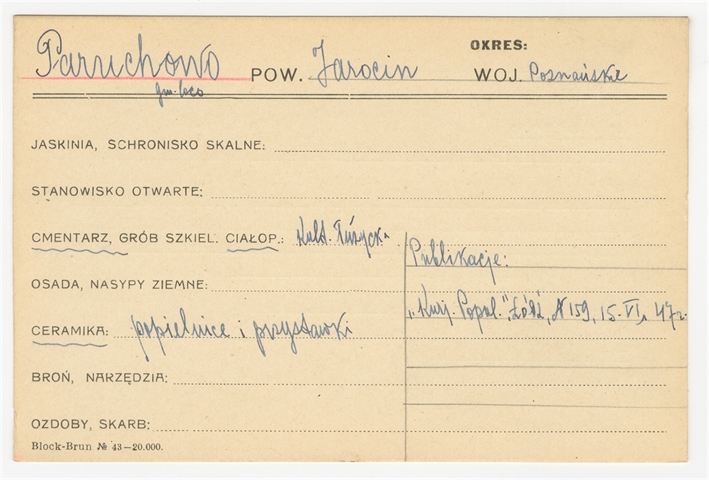 OKRES:
Paruchowo POW. Jarocin WOJ. Poznańskie
gm. loco
JASKINIA, SCHRONISKO SKALNE:
STANOWISKO OTWARTE:
CMENTARZ, GRÓB SZKIEL. CIAŁOP.: Kult. Łużycka
Publikacje:
OSADA, NASYPY ZIEMNE:
"Kurj. Popul.", Łódź, N 159, 15. VI. 47 r.
CERAMIKA: popielnice i przystawki
BROŃ, NARZĘDZIA:
OZDOBY, SKARB:
Block-Brun № 43—20.000.